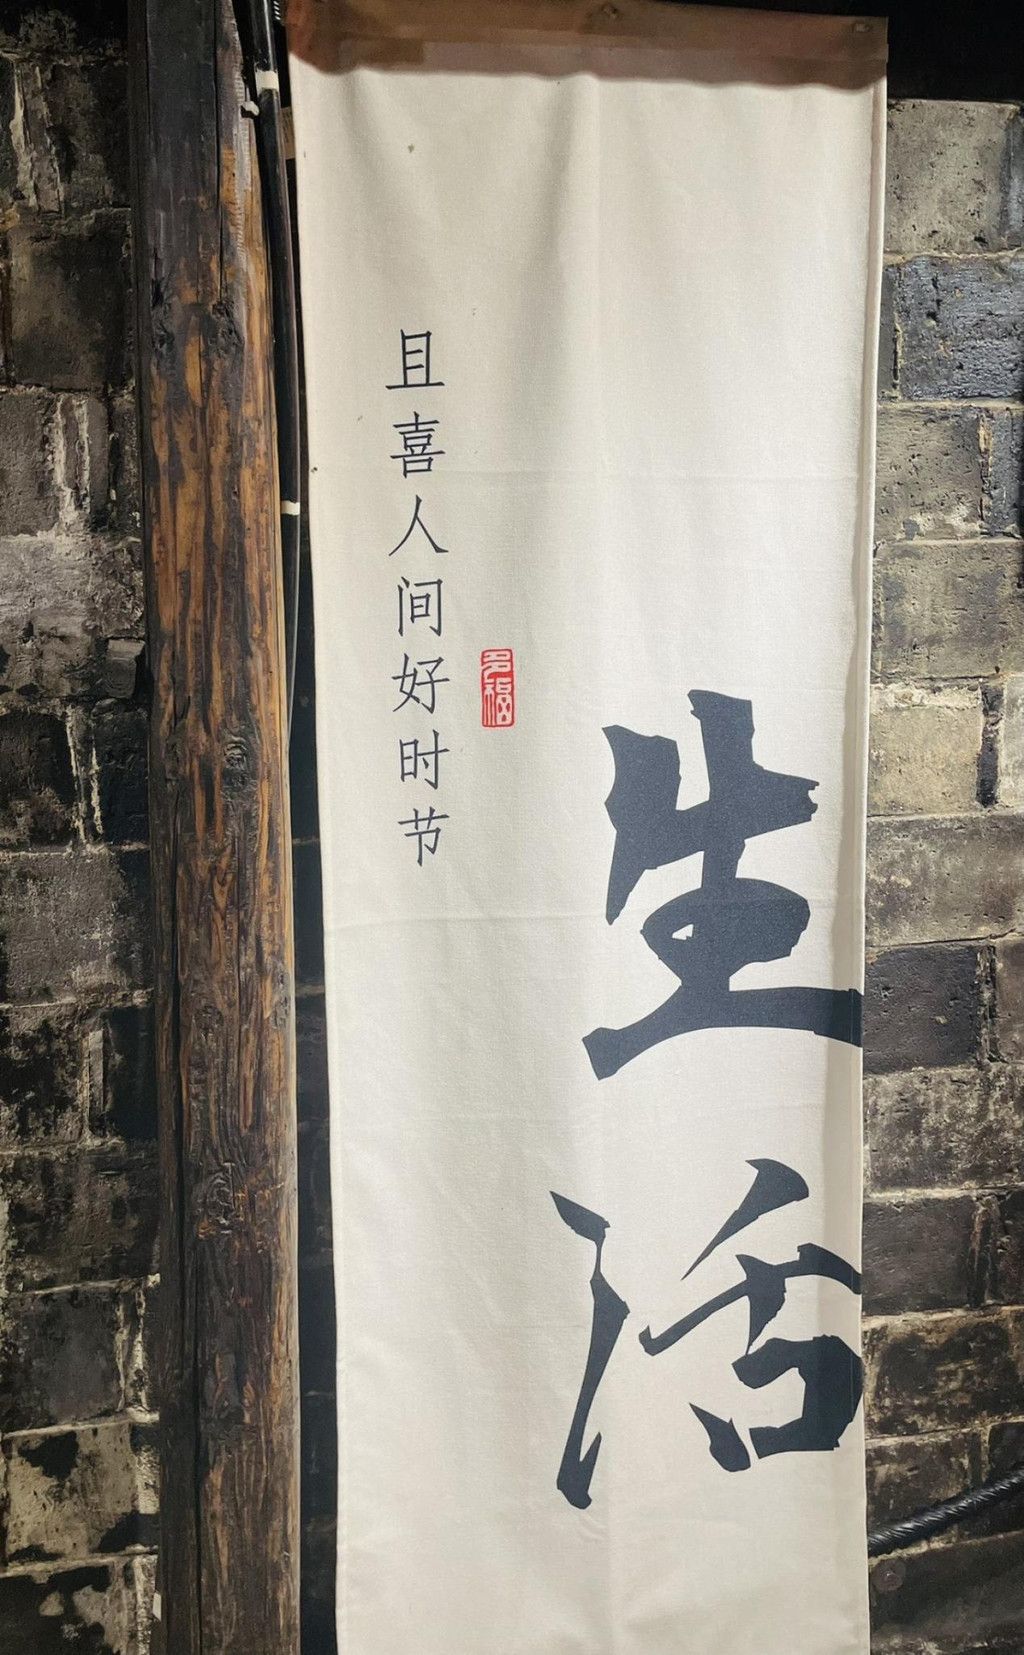 生活
多福
且喜人间好时节